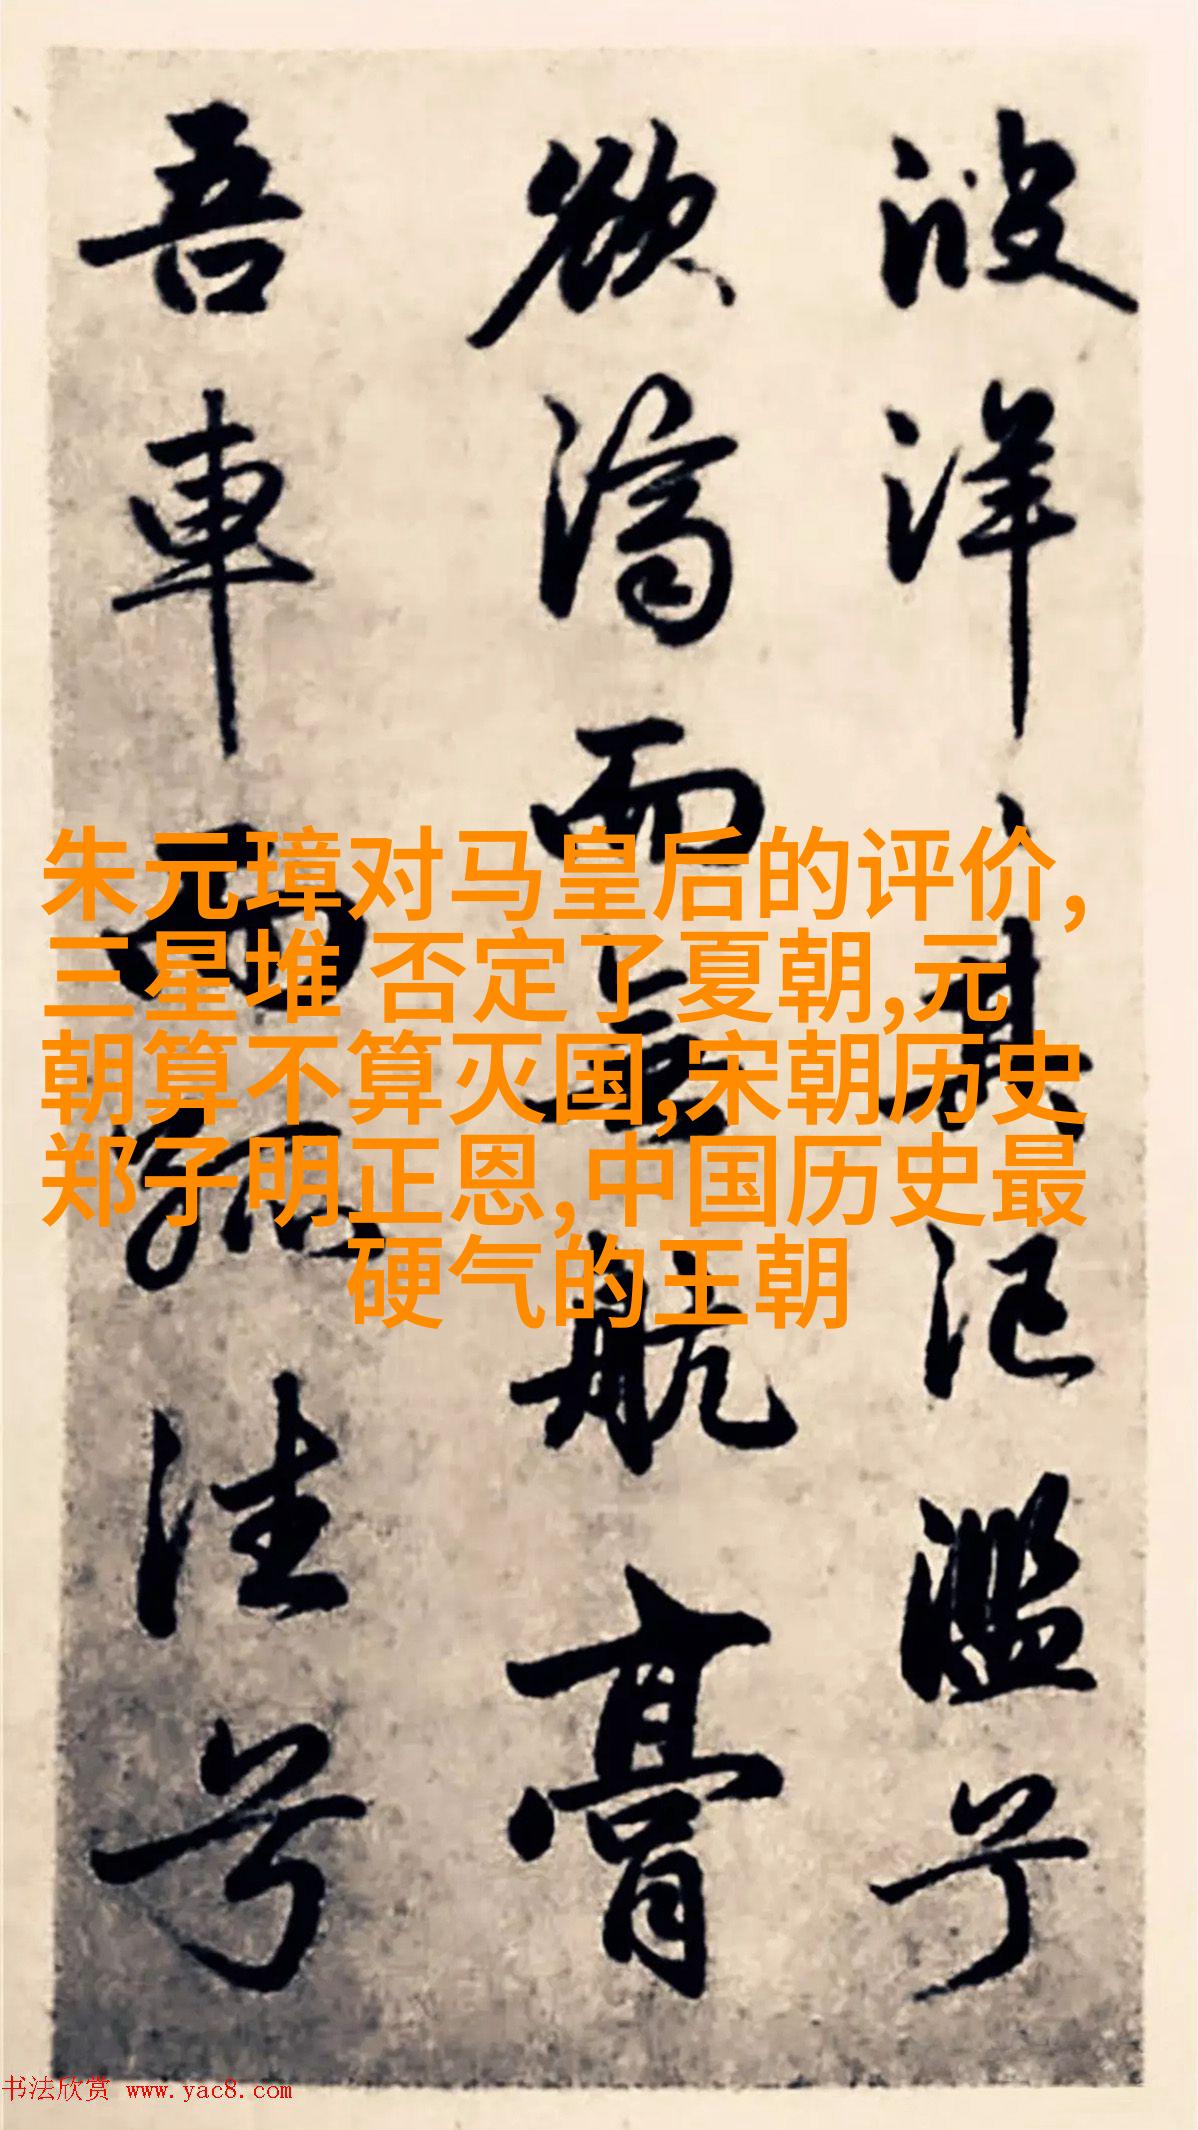 波洋其氾濫兮
欲濟而無航膏
吾車而孤往兮
朱元璋对马皇后的评价,
三星堆 否定了夏朝,元
朝算不算灭国,宋朝历史
郑子明正恩,中国历史最
硬气的王朝
书法欣赏 www.yac8.com